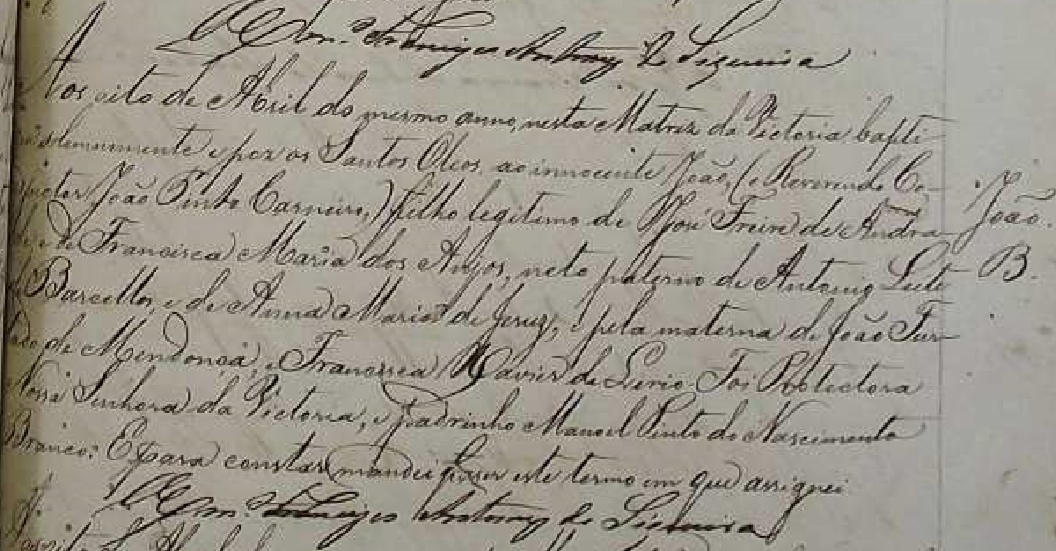 de Siqueira
Aos oito de Abril do mesmo anno, nesta Matriz da Victoria bapti-
solemnemente e poz os Santos Oleos ao innocente João, (o Reverendo Co-
João Pinto Carneiro,) filho legitimo de José Freire de Andra-
João.
de, e de Francisca Maria dos Anjos, neto paterno de Antonio Leite
B.
de Barcellos, e de Anna Maria de Jesuz, e pela materna de João Fur-
tado de Mendonça, e Francisca Xavier de Lirio. Foi Protectora
Nossa Senhora da Victoria, e padrinho Manoel Pinto do Nascimento
Branco: E para constar mandei fazer este termo em que assignei
de Siqueira